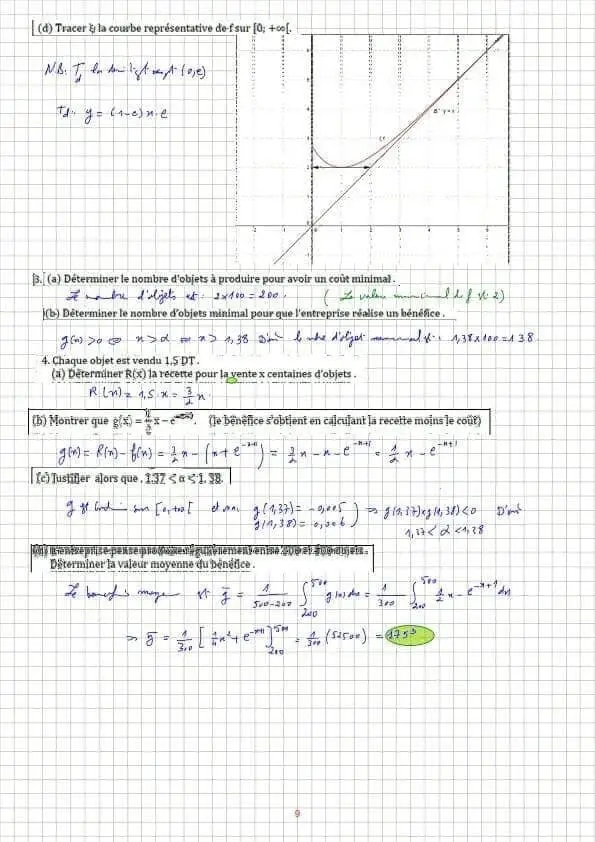 (d) Tracer ζ la courbe représentative de f sur [0; +∞[.
N.B: (0,e)
Td: y = (1-e)x+e
3. (a) Déterminer le nombre d'objets à produire pour avoir un coût minimal.
Le nombre d'objets est: 2x100=200. (La valeur minimal de f : 2)
(b) Déterminer le nombre d'objets minimal pour que l'entreprise réalise un bénéfice.
g(x)>0 ⇔ x>α ⇔ x> 1,38 D'où le nbre d'objet minimal est: 1,38x100=138.
4. Chaque objet est vendu 1,5 DT.
(a) Déterminer R(x) la recette pour la vente x centaines d'objets.
R(x) = 1,5 x = 3/2 x
(b) Montrer que g(x) = x-e (le bénéfice s'obtient en calculant la recette moins le coût)
g(x) = R(x) - f(x) = 3/2 x - (x+e^-x+1) = 3/2 x - x - e^-x+1 = 1/2 x - e^-x+1
(c) Justifier alors que. 1.37 < α < 1.38.
g est continue sur [0,+∞[ et on a g(1,37)= -0,005 ⇒ g(1,37)xg(1,38)<0 D'où
g(1,38) = 0,006 1,37<α<1,38
Déterminer la valeur moyenne du bénéfice.
Le bénéfice moyen est ḡ = 1/500-200 ∫ 200 500 g(x)dx = 1/300 ∫ 200 500 1/2 x - e^-x+1 dx
⇒ ḡ = 1/300 [1/4 x² + e^-x+1] 500 200 = 1/300 (52500) =
9